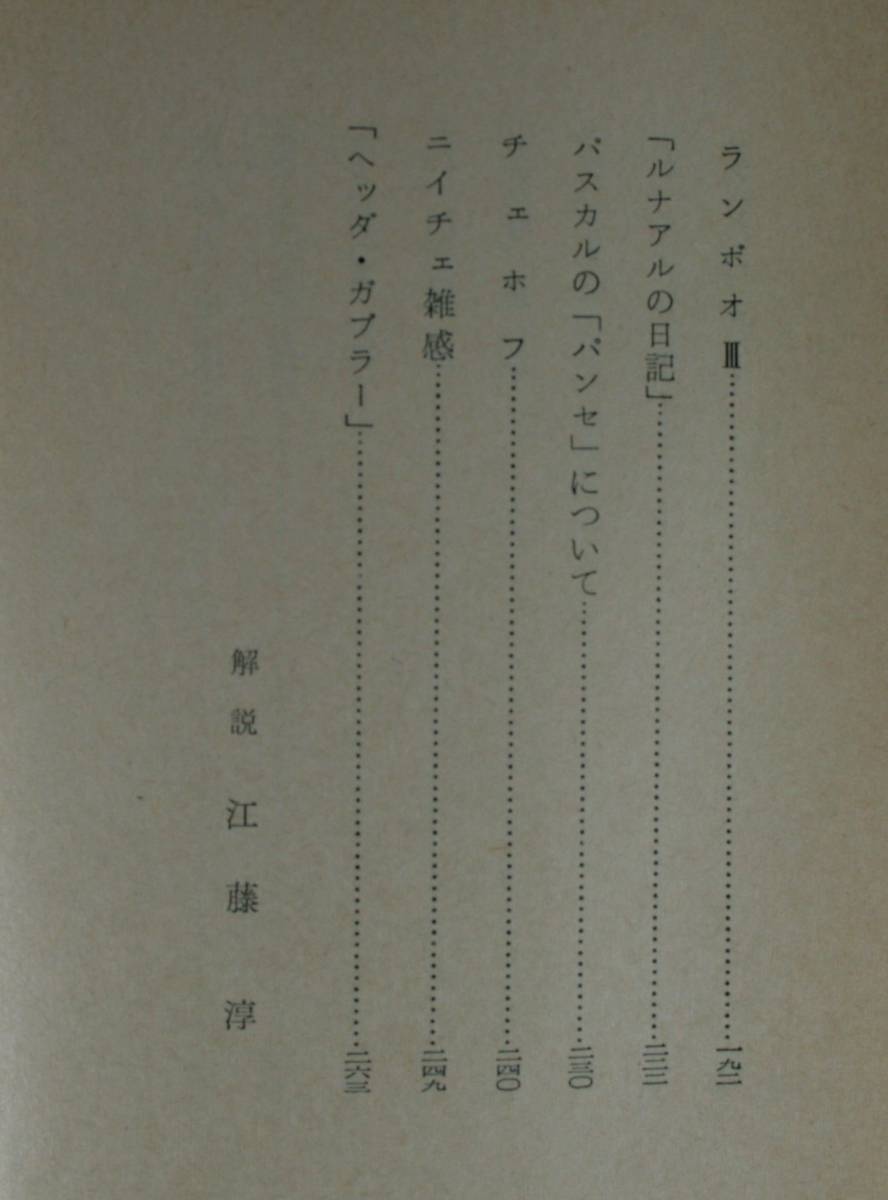 ランボオⅢ……一九二
「ルナアルの日記」……
パスカルの「パンセ」について……二三〇
チェホフ……二四〇
ニイチェ雑感……二四九
「ヘッダ・ガブラー」……二六三
解説 江藤淳